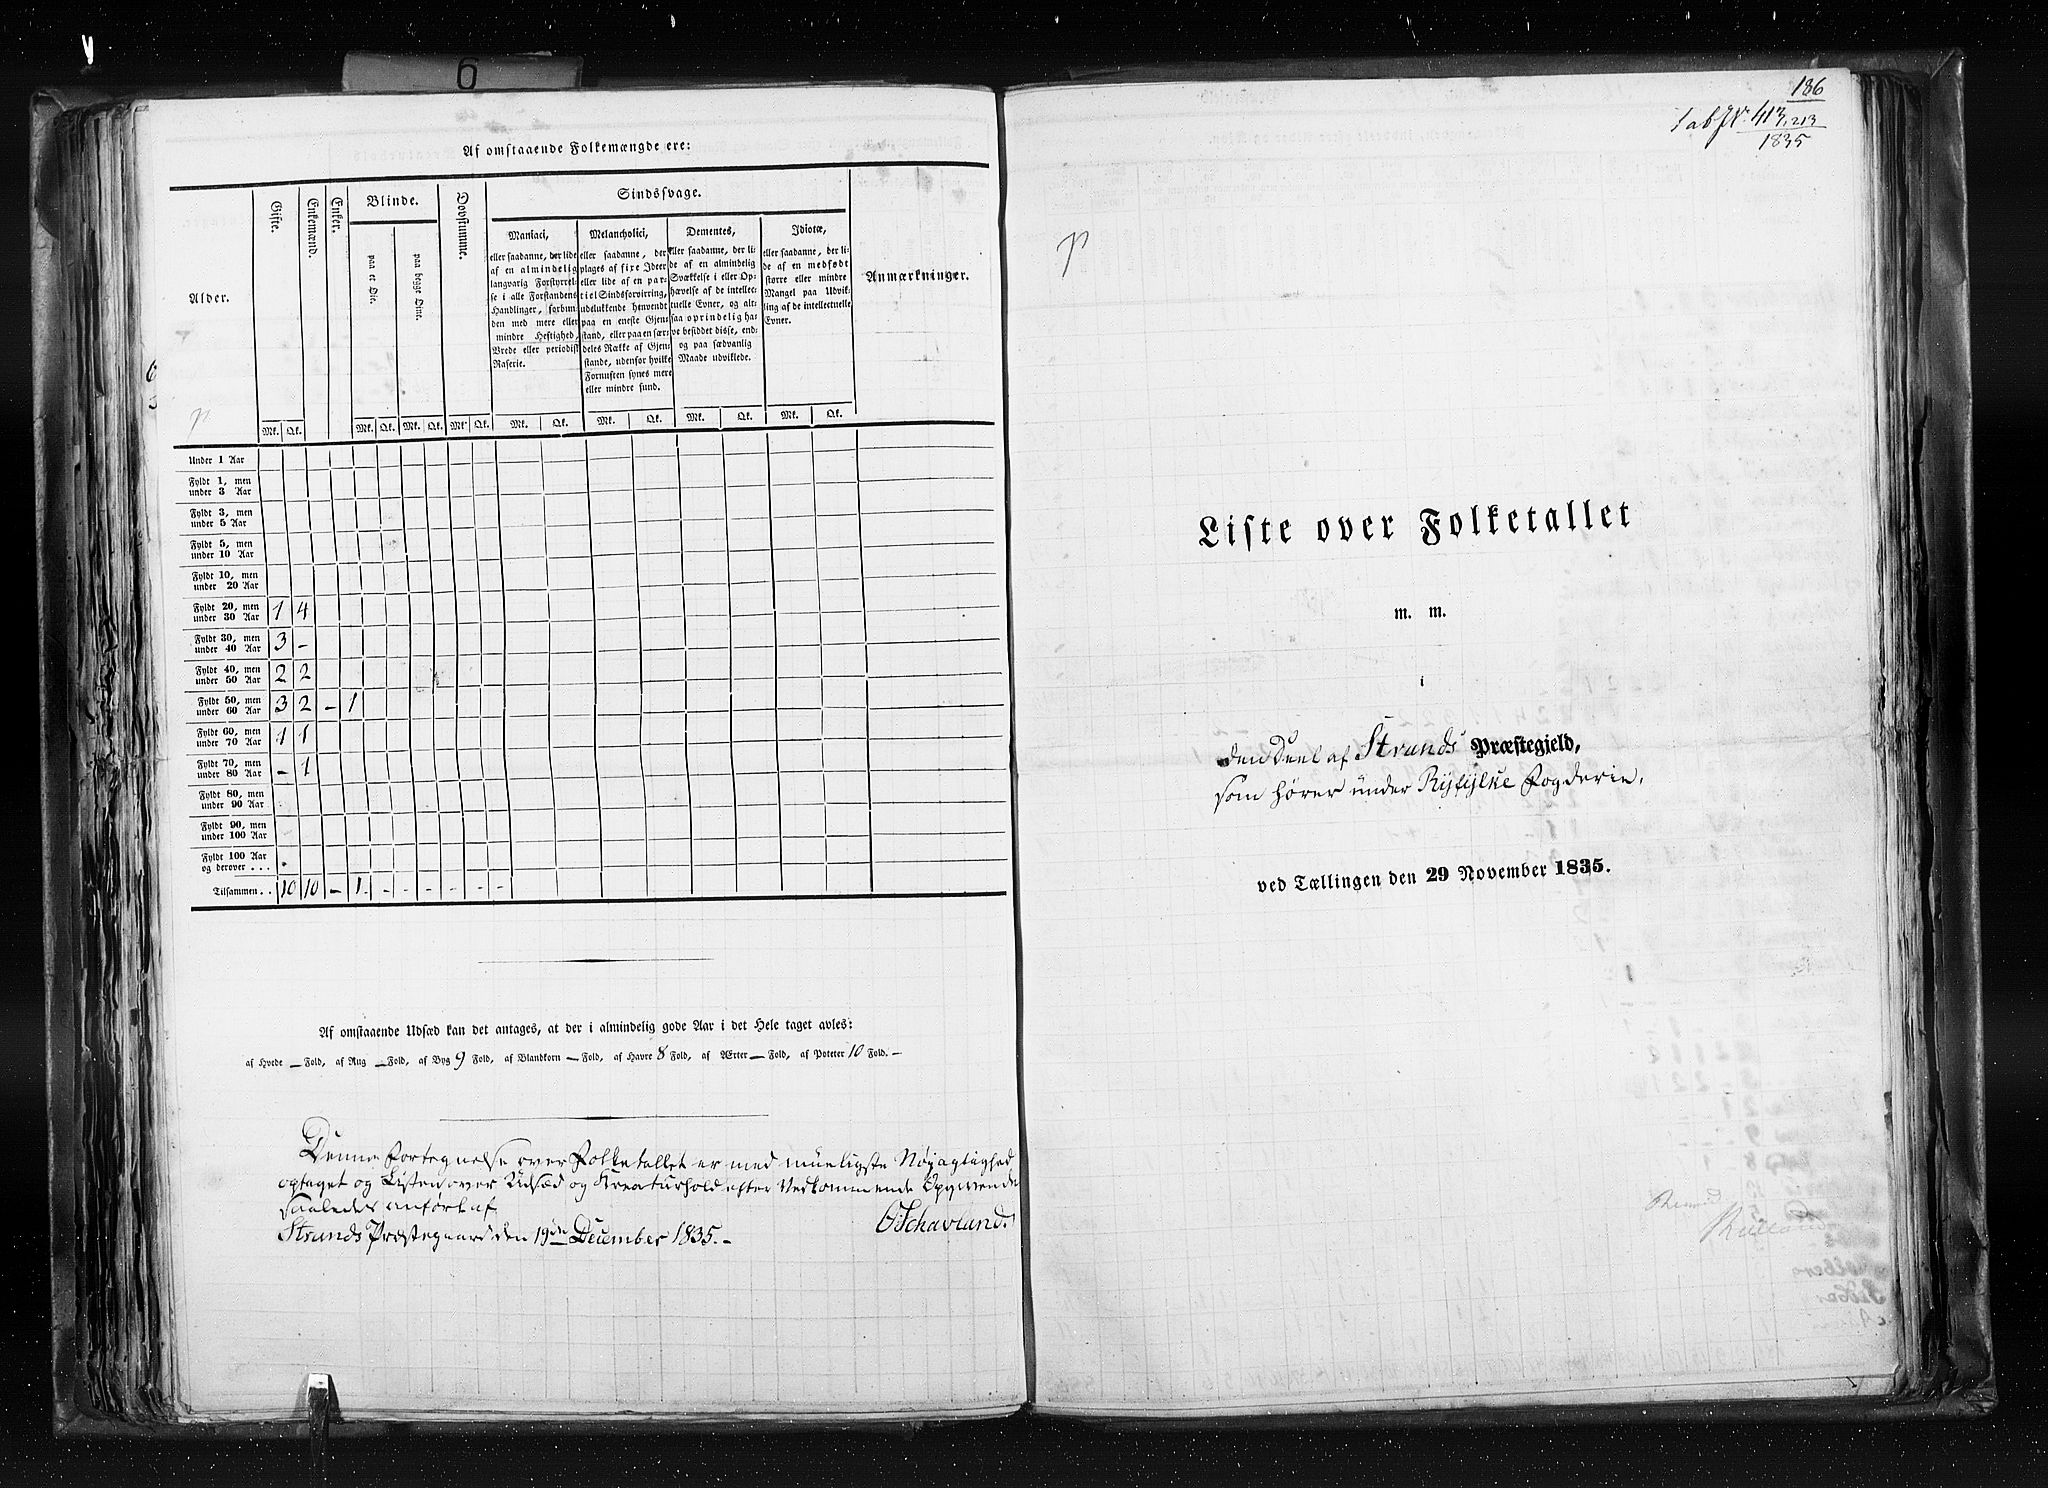 6
Af omstaaende Folkemængde ere:
Alder.
Gifte.
Enkemænd.
Enker.
Blinde.
paa et Øie.
paa begge Øine.
Døvstumme.
Sindssvage.
Maniaci,
eller saadanne, der lide
af en almindelig
langvarig Forstyrrel-
se i alle Forstandens
Handlinger, forbun-
den med mere eller
mindre Heftighed,
Vrede eller periodisk
Raserie.
Melancholici,
eller saadanne, der
plages af fixe Ideer
eller lide af en par-
tiel Sindsforvirring,
udelukkende henvendt
paa en eneste Gjen-
stand, eller paa en sær-
deles Række af Gjen-
stande, udenfor hvilke
Fornuften synes mere
eller mindre sund.
Dementes,
eller saadanne, der li-
de af en almindelig
Svækkelse i eller Op-
hævelse af de intellec-
tuelle Evner, og alt-
saa oprindelig ha-
ve besiddet disse, end-
og paa sædvanlig
Maade udviklede.
Idiotæ,
eller saadanne, der li-
de af en medfødt
større eller mindre
Mangel paa Udvik-
ling af de intellectuelle
Evner.
Anmærkninger.
Mk. Qk. Mk. Qk. Mk. Qk. Mk. Qk. Mk. Qk. Mk. Qk. Mk. Qk. Mk. Qk.
Under 1 Aar
Fyldt 1, men
under 3 Aar
Fyldt 3, men
under 5 Aar
Fyldt 5, men
under 10 Aar
Fyldt 10, men
under 20 Aar
Fyldt 20, men
under 30 Aar 1 4
Fyldt 30, men
under 40 Aar 3 -
Fyldt 40, men
under 50 Aar 2 2
Fyldt 50, men
under 60 Aar 3 2 - 1
Fyldt 60, men
under 70 Aar 1 1
Fyldt 70, men
under 80 Aar - 1
Fyldt 80, men
under 90 Aar
Fyldt 90, men
under 100 Aar
Fyldt 100 Aar
og derover . . .
Tilsammen . . 10 10 - 1. - - - - - -
Af omstaaende Udsæd kan det antages, at der i almindelig gode Aar i det Hele taget avles:
af Hvede - Fold, af Rug - Fold, af Byg 9 Fold, af Blandkorn - Fold, af Havre 8 Fold, af Ærter - Fold, af Poteter 10 Fold. -
Denne Fortegnelse over Folketallet er med mueligste Nøyagtighed
optaget og Listen over Udsæd og Kreaturhold efter Vedkommende Opgivende
saaledes anført af
Strands Præstegaard den 19de December 1835. -
O Schavland.
186
Tab No. 413, 213
1835
Liste over Folketallet
m. m.
i
den Deel af Strands Præstegjeld,
som hører under Ryfylke Fogderie,
ved Tællingen den 29 November 1835.